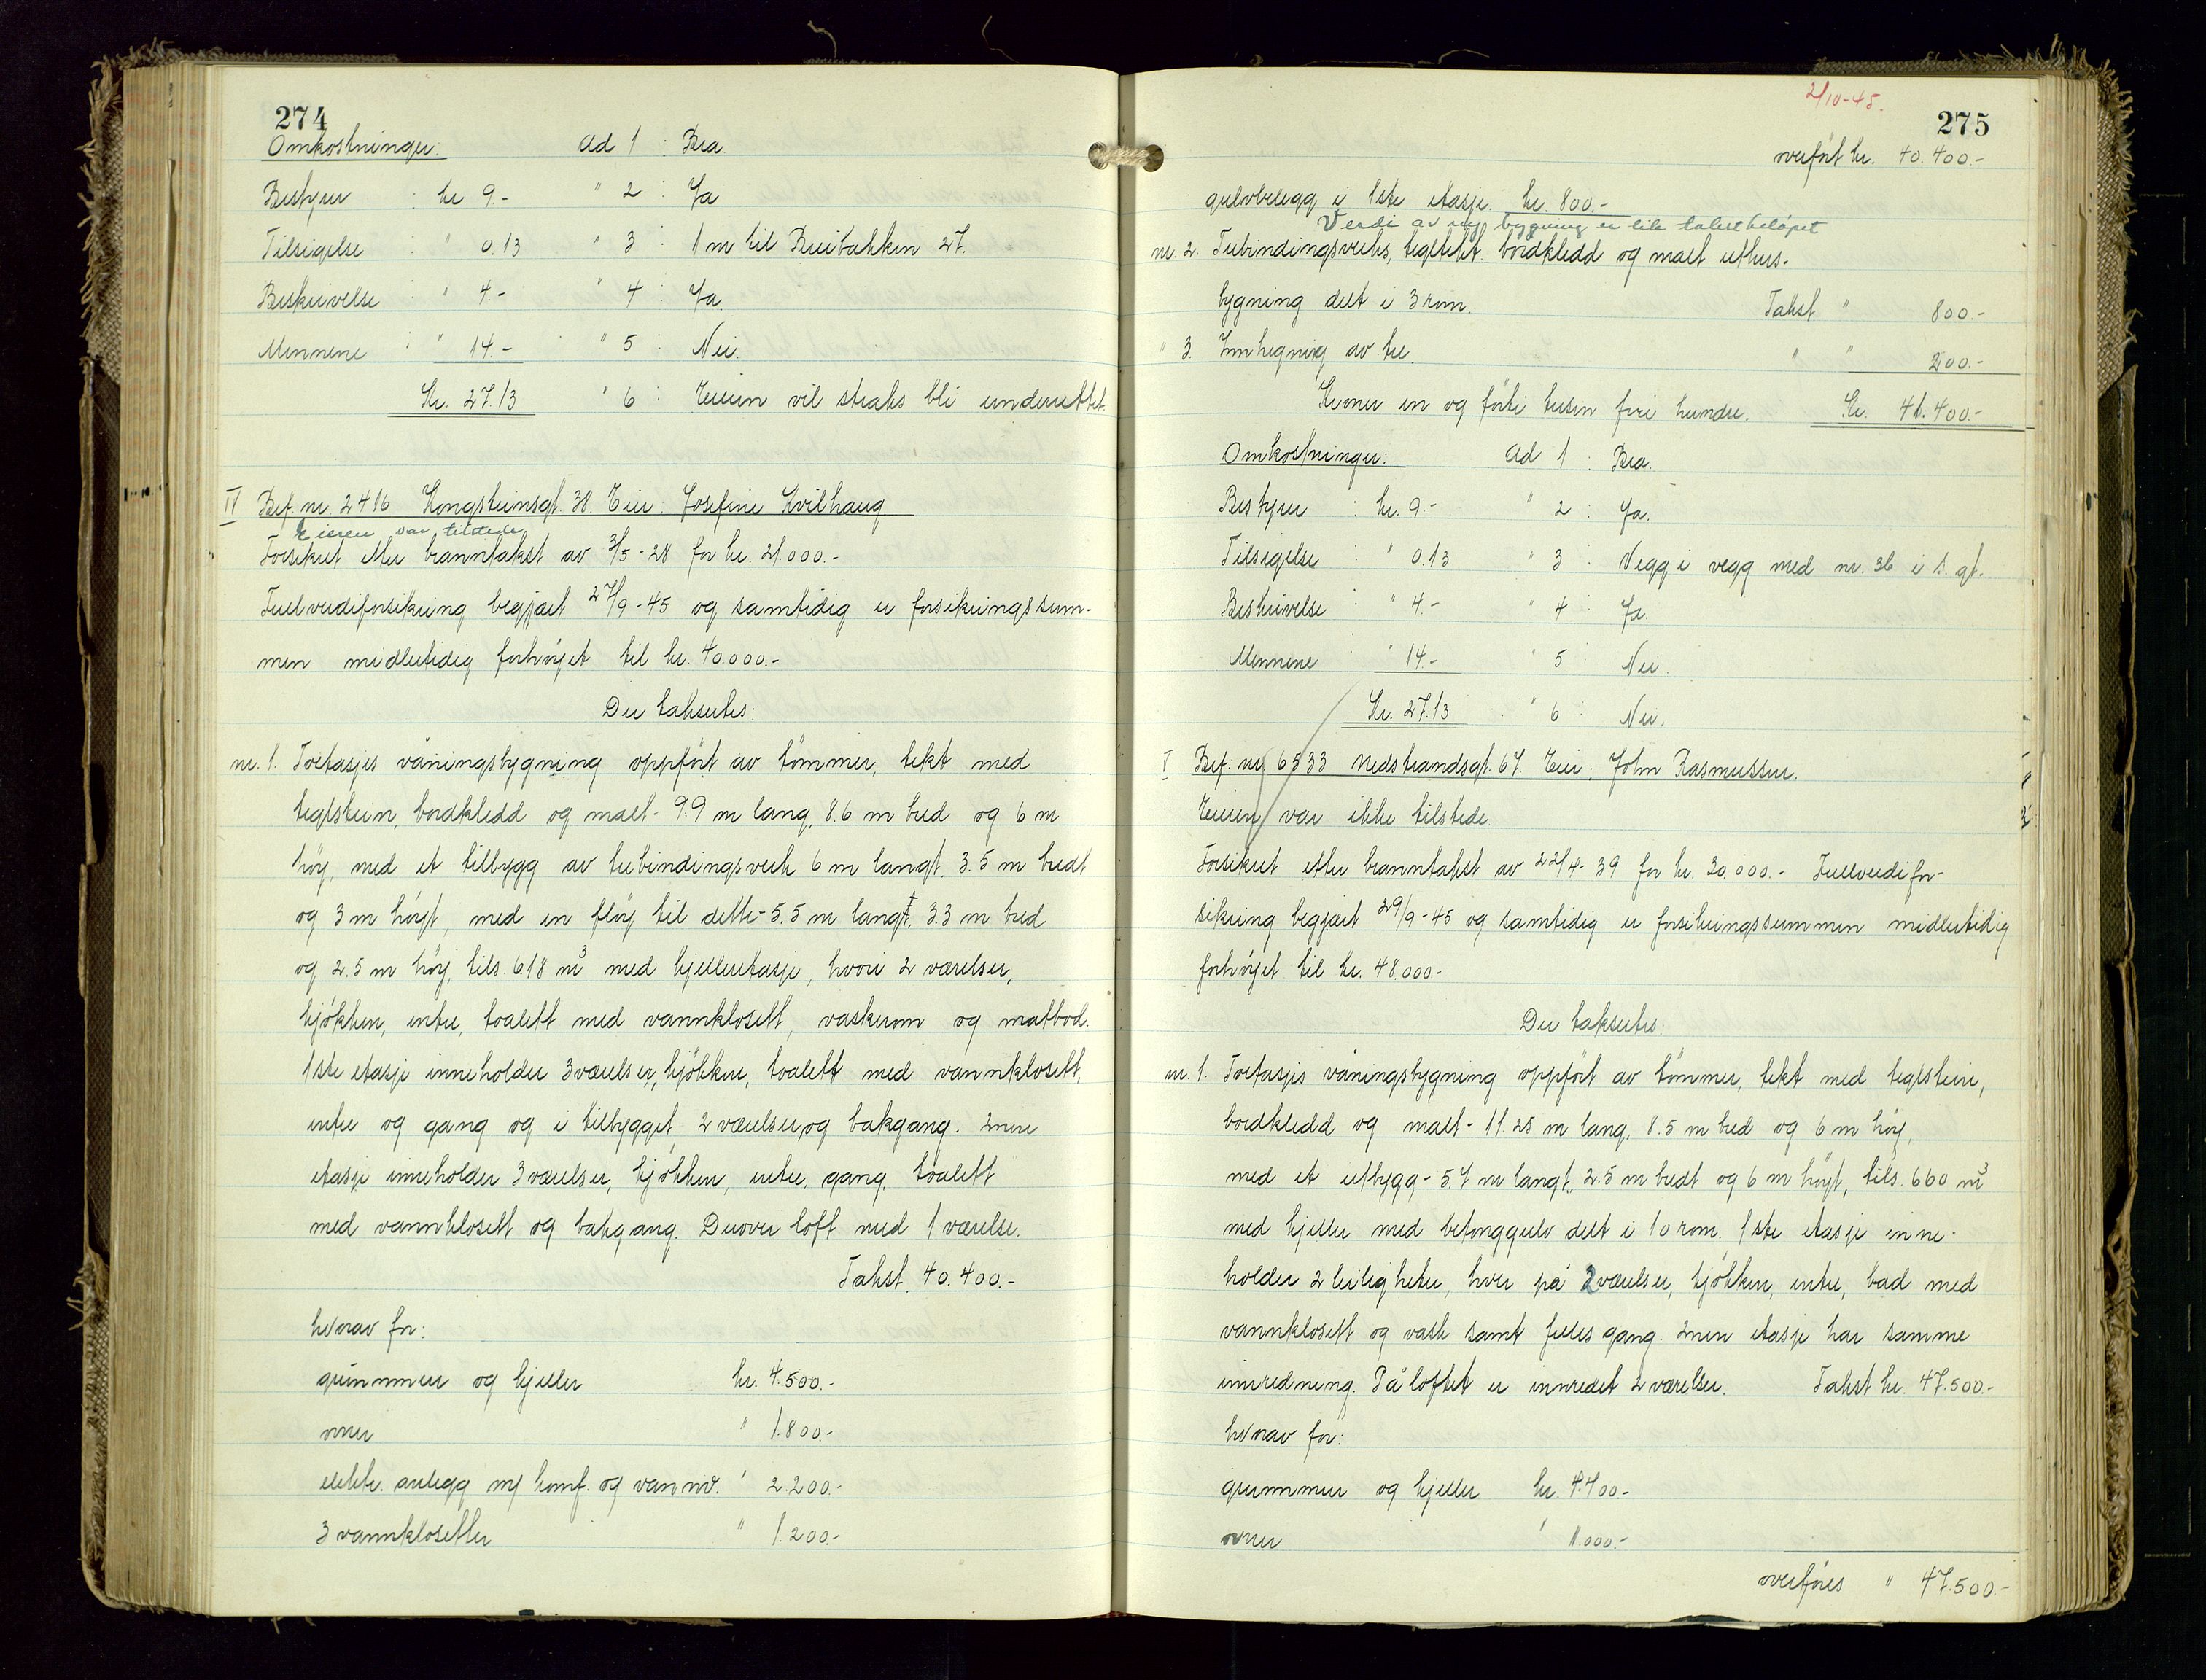 274
Omkostninger: Ad 1 : Bra.
Bestyrer : kr 9.- " 2 : Ja
Tilsigelse : " 0.13 " 3 : 1 m til Breibakken 27.
Beskrivelse : " 4.- " 4 : Ja.
Mennene : " 14.- " 5 : Nei.
Kr. 27.13 " 6 : Eieren vil straks bli underrettet.
IV Bef. nr. 2416 Kongsteinsgt. 38. Eier: Josefine Kvilhaug
Eieren var tilstede
Forsikret etter branntakst av 3/5-28 for kr. 21.000.-
Fullverdiforsikring begjært 27/9-45 og samtidig er forsikringssum-
men midlertidig forhöyet til kr. 40.000.-
Der takseres:
nr. 1. Toetasjes våningsbygning oppfört av tömmer, tekt med
teglstein, bordkledd og malt - 9.9 m lang, 8.6 m bred og 6 m
höy, med et tilbygg av trebindingsverk 6 m langt, 3.5 m bredt
og 3 m höyt, med en flöy til dette - 5.5 m langt, 3.3 m bred
og 2.5 m höy, tils. 618 m³ med kjelleretasje, hvori 2 værelser,
kjökken, entre, toalett med vannklosett, vaskerom og matbod.
1ste etasje inneholder 3 værelser, kjökken, toalett med vannklosett,
entre og gang og i tilbygget 2 værelser og bakgang. 2nen
etasje inneholder 3 værelser, kjökken, entre, gang, toalett
med vannklosett og bakgang. Derover loft med 1 værelse.
Takst 40.400.-
hvorav for:
grunnmur og kjeller kr. 4.500.-
ovner " 1.800.-
elektr. anlegg m/ komf. og vannv. " 2.200.-
3 vannklosetter " 1.200.-
2/10-45.
275
overfört kr. 40.400.-
gulvbelegg i 1ste etasje. kr. 800.-
Verdi av utg. bygning er lik takstbelöpet
nr. 2. Trebindingsverks, tegltekt bordkledd og malt uthus-
bygning delt i 3 rom. Takst " 800.-
" 3. Innhegning av tre. " " 200.-
Kroner en og förti tusen fire hundre. Kr. 41.400.-
Omkostninger: Ad 1 : Bra.
Bestyrer : kr. 9.- " 2 : Ja.
Tilsigelse : " 0.13 " 3 : Vegg i vegg med nr. 36 i s. gt.
Beskrivelse : " 4.- " 4 : Ja.
Mennene : " 14.- " 5 : Nei.
Kr. 27.13 " 6 : Nei.
V Bef. nr. 6533 Nedstrandsgt. 67. Eier: John Rasmussen.
Eieren var ikke tilstede.
Forsikret etter branntakst av 22/4-39 for kr. 30.000.- Fullverdifor-
sikring begjært 29/9-45 og samtidig er forsikringssummen midlertidig
forhöyet til kr. 48.000.-
Der takseres:
nr. 1. Toetasjes våningsbygning oppfört av tömmer, tekt med teglstein,
bordkledd og malt - 11.25 m lang, 8.5 m bred og 6 m höy,
med et utbygg - 5.7 m langt, 2.5 m bredt og 6 m höyt, tils. 660 m³
med kjeller med betonggulv delt i 10 rom. 1ste etasje inne-
holder 2 leiligheter, hver på 2 værelser, kjökken, entre, bad med
vannklosett og vask samt felles gang. 2nen etasje har samme
innredning. På loftet er innredet 2 værelser. Takst kr. 47.500.-
hvorav for:
grunnmur og kjeller kr. 4.400.-
ovner " 1.000.-
overföres " 47.500.-